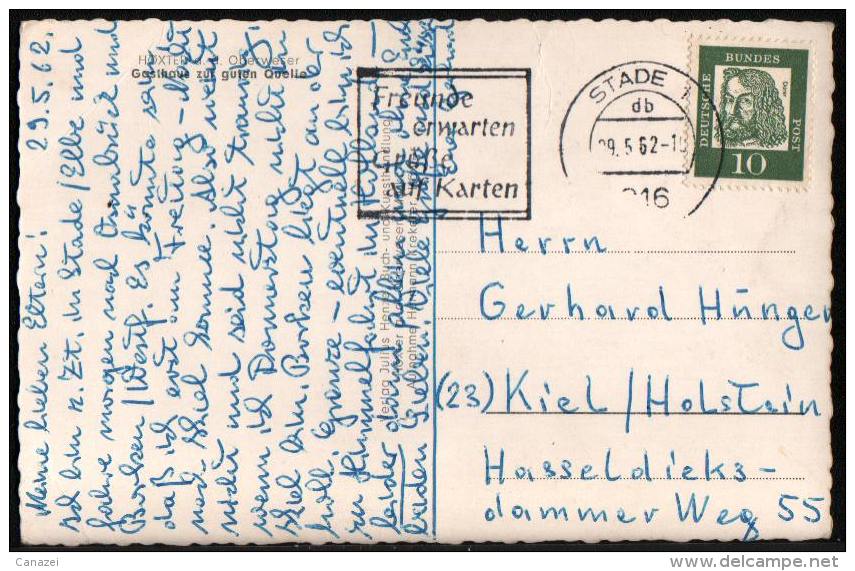 HÖXTER a. d. Oberweser
Gasthaus zur guten Quelle
29.5.62.
Meine lieben Eltern!
Ich bin z. Zt. in Stade/Elbe und
fahre morgen nach Osnabrück und
Borken/Westf. Es könnte sein,
daß ich erst am Freitag
nach Kiel komme. Also nicht
und seid nicht traurig,
wenn ich Donnerstag nicht in
Kiel bin. Borken liegt an der
holl. Grenze – eventuell bin ich
zu Himmelfahrt in Holland –
leider dann allein, ohne Euch
beiden Lieben. Viele
Verlag Julius Henze, Buch- und Kunsthandlung
Höxter
Aufnahme Hermann Krekeler
Freunde
erwarten
Grüße
auf Karten
STADE 1
db
29.5.62-10
216
DEUTSCHE
BUNDES
POST
Dürer
10
Herrn
Gerhard Hünger
(23) Kiel/Holstein
Hasseldieks-
dammer Weg 55
Canazei
www.delcampe.net